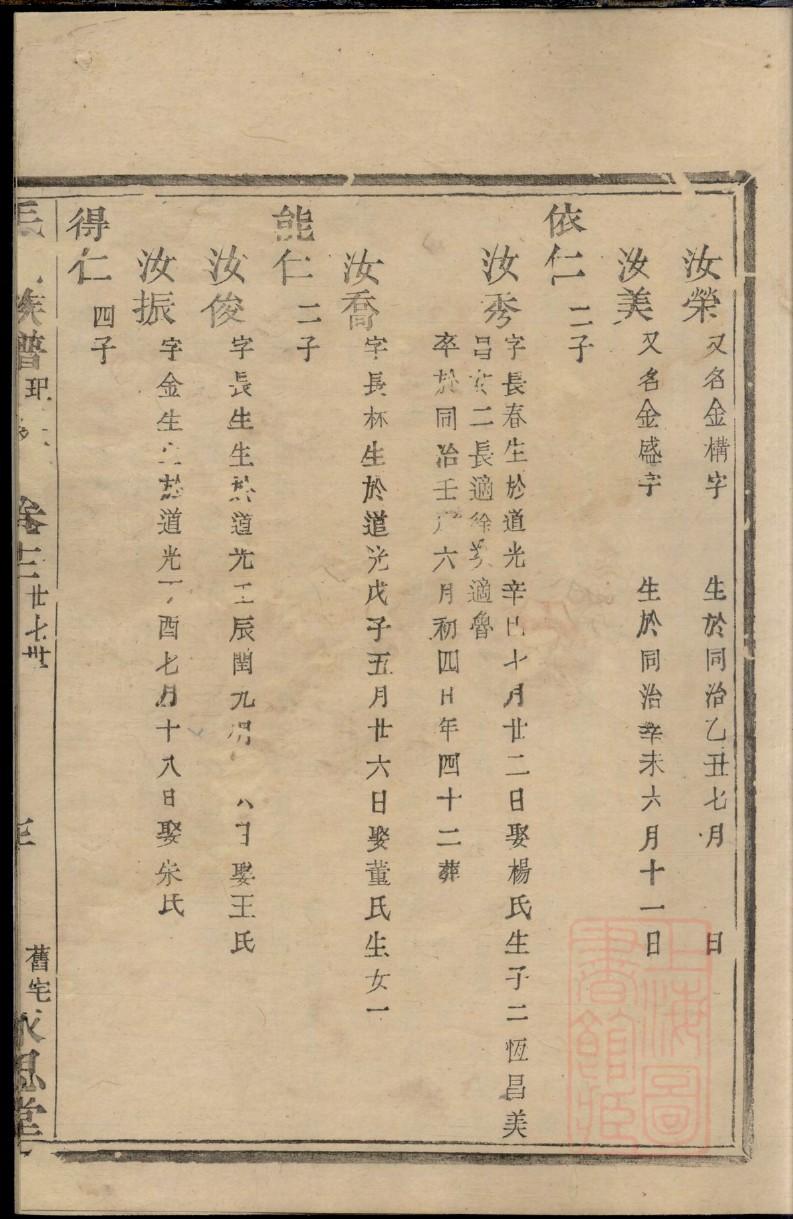 汝榮 又名金構字 生於同治乙丑七月 日
汝美 又名金盛字 生於同治辛未六月十一日
依仁 二子
汝秀 字長春生於道光辛巳七月廿二日娶楊氏生子二恆昌美
昌女二長適徐 適魯
卒於同治壬 六月初四日年四十二葬
汝喬 字長杯生於道光戊子五月廿六日娶董氏生女一
能仁 二子
汝俊 字長生生於道光壬辰閏九月 八日娶王氏
汝振 字金生生於道光丁酉七月十八日娶朱氏
得仁 四子
族譜 卷十三 廿七世 舊宅 思堂
上海圖書館